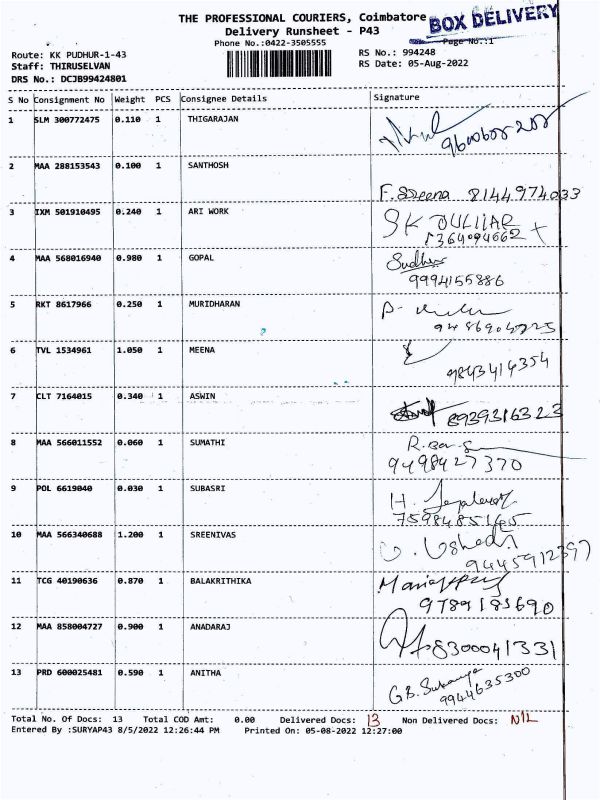 THE PROFESSIONAL COURIERS, Coimbatore
BOX DELIVERY
Delivery Runsheet - P43
Phone No.:0422-3505555
Page No.:1
Route: KK PUDHUR-1-43
RS No.: 994248
Staff: THIRUSELVAN
RS Date: 05-Aug-2022
DRS No.: DCJB99424801
S No Consignment No Weight PCS Consignee Details Signature
1 SLM 300772475 0.110 1 THIGARAJAN
2 MAA 288153543 0.100 1 SANTHOSH
F. Sreena 8144974033
3 IXM 501910495 0.240 1 ARI WORK
SK
4 MAA 568016940 0.980 1 GOPAL
Sudhir
9994155886
5 RKT 8617966 0.250 1 MURIDHARAN
6 TVL 1534961 1.050 1 MEENA
9843414354
7 CLT 7164015 0.340 1 ASWIN
8939316323
8 MAA 566011552 0.060 1 SUMATHI
9498427370
9 POL 6619040 0.030 1 SUBASRI
H.
7598485165
10 MAA 566340688 1.200 1 SREENIVAS
9445912397
11 TCG 40190636 0.870 1 BALAKRITHIKA
9789183690
12 MAA 858004727 0.900 1 ANADARAJ
8300041331
13 PRD 600025481 0.590 1 ANITHA
G.B. Sukanya
9944635300
Total No. Of Docs: 13 Total COD Amt: 0.00 Delivered Docs: 13 Non Delivered Docs: NIL
Entered By :SURYAP43 8/5/2022 12:26:44 PM Printed On: 05-08-2022 12:27:00